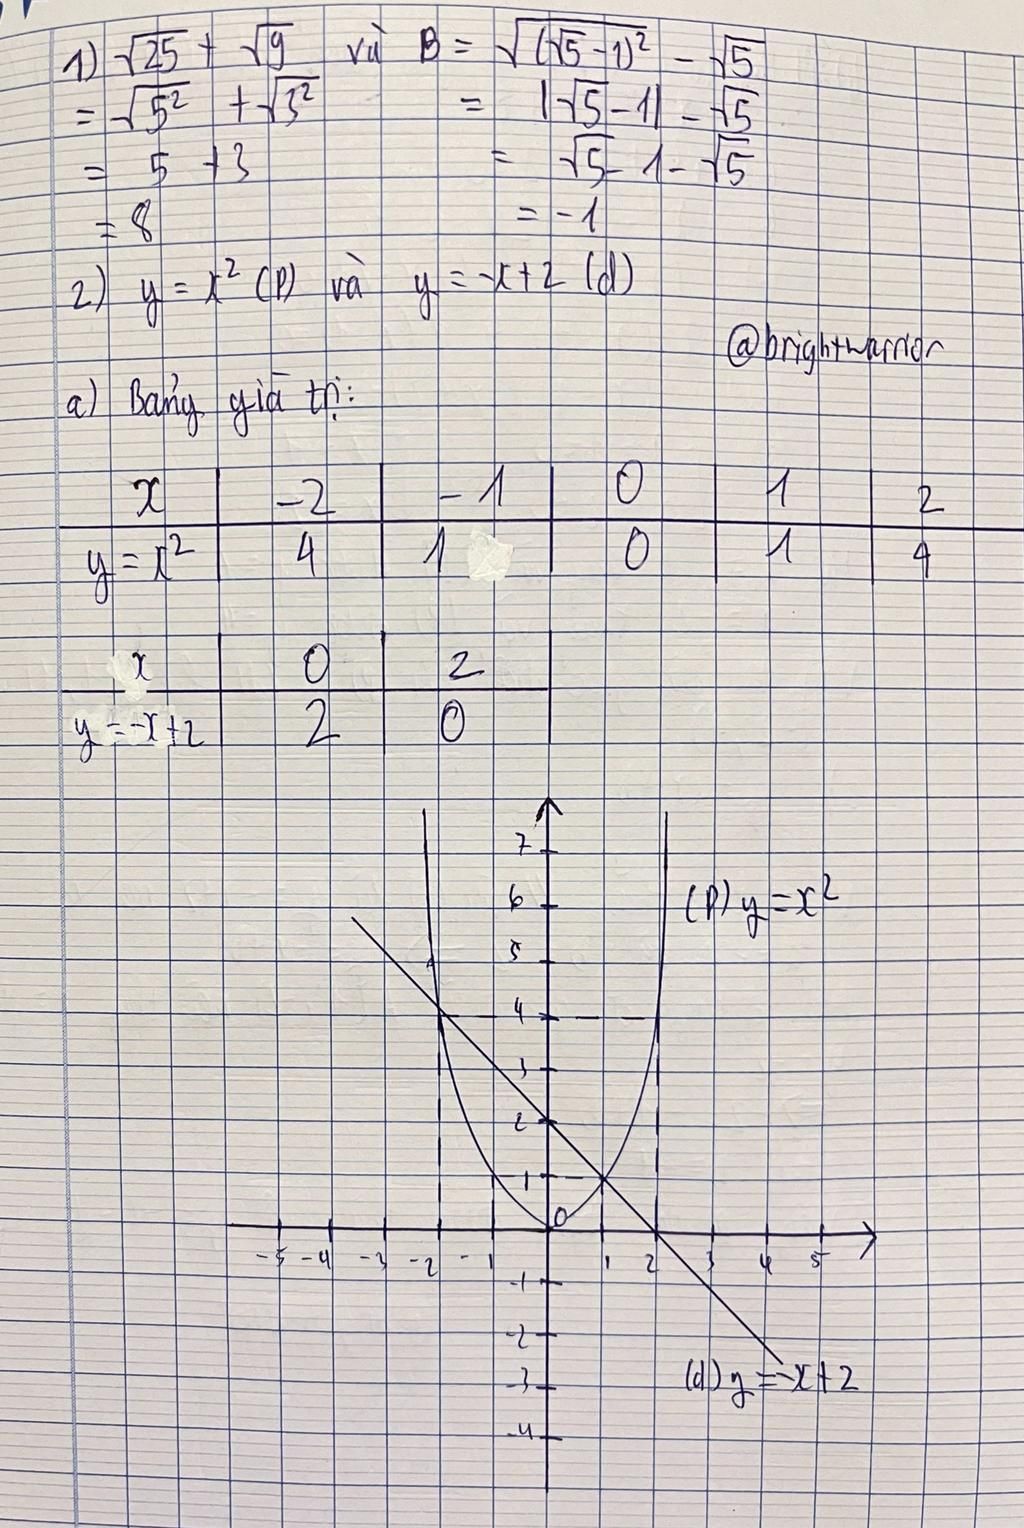 1) √25 + √9 và B = √(√5 - 1)² - √5
= √5² + √3² = |√5 - 1| - √5
= 5 + 3 = √5 - 1 - √5
= 8 = -1
2) y = x² (P) và y = -x+2 (d)
@brightwarrior
a) Bảng giá trị:
x -2 -1 0 1 2
y = x² 4 1 0 1 4
x 0 2
y = -x+2 2 0
7
6 (P) y = x²
5
4
3
2
1
0
-5 -4 -3 -2 -1 1 2 3 4 5
-1
-2
-3 (d) y = -x+2
-4